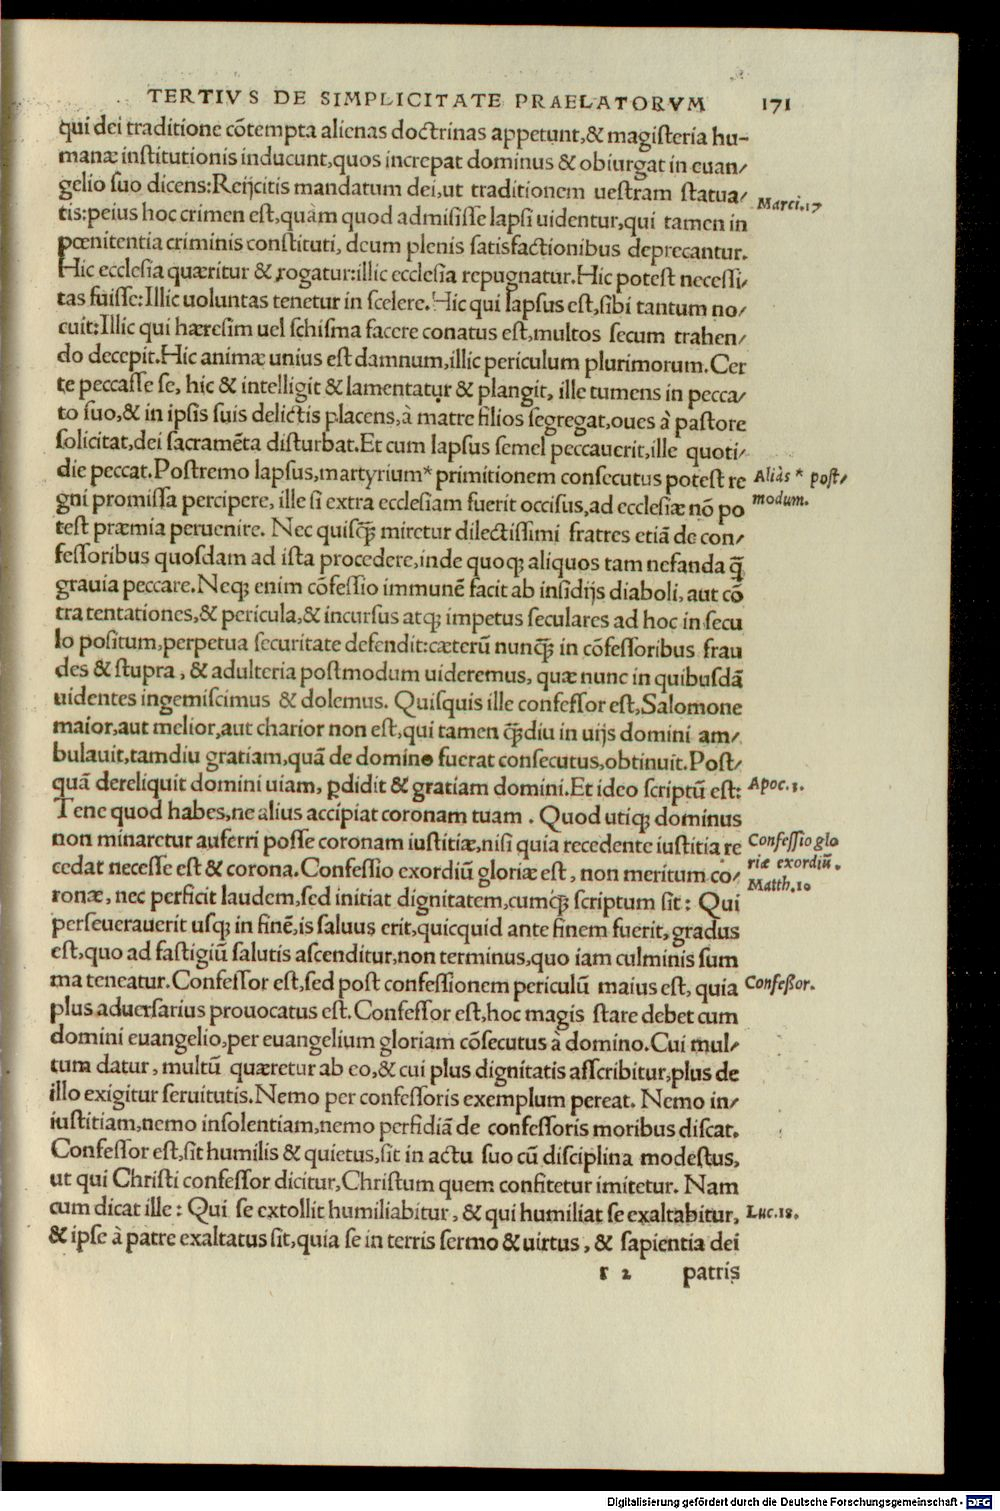 TERTIVS DE SIMPLICITATE PRAELATORVM 171
qui dei traditione cõtempta alienas doctrinas appetunt,& magisteria hu-
manæ institutionis inducunt,quos increpat dominus & obiurgat in euan/
gelio suo dicens:Reijcitis mandatum dei,ut traditionem uestram statua/
Marci.17
tis:peius hoc crimen est,quàm quod admisisse lapsi uidentur,qui tamen in
pœnitentia criminis constituti, deum plenis satisfactionibus deprecantur.
Hic ecclesia quæritur & rogatur:illic ecclesia repugnatur.Hic potest necessi/
tas fuisse:Illic uoluntas tenetur in scelere.Hic qui lapsus est,sibi tantum no/
cuit:Illic qui hæresim uel schisma facere conatus est,multos secum trahen/
do decepit.Hic animæ unius est damnum,illic periculum plurimorum.Cer
te peccasse se, hic & intelligit & lamentatur & plangit, ille tumens in pecca/
to suo,& in ipsis suis delictis placens,à matre filios segregat,oues à pastore
solicitat,dei sacramẽta disturbat.Et cum lapsus semel peccauerit,ille quoti/
die peccat.Postremo lapsus,martyrium* primitionem consecutus potest re
Aliàs * post/
gni promissa percipere, ille si extra ecclesiam fuerit occisus,ad ecclesiæ nõ po
modum.
test præmia peruenire. Nec quisq̃ miretur dilectissimi fratres etiã de con/
fessoribus quosdam ad ista procedere,inde quoq; aliquos tam nefanda q̃
grauia peccare.Neq; enim cõfessio immunẽ facit ab insidijs diaboli, aut cõ
tra tentationes,& pericula,& incursus atq; impetus seculares ad hoc in secu
lo positum,perpetua securitate defendit:cæterũ nunq̃ in cõfessoribus frau
des & stupra, & adulteria postmodum uideremus, quæ nunc in quibusdã
uidentes ingemiscimus & dolemus. Quisquis ille confessor est,Salomone
maior,aut melior,aut charior non est,qui tamen q̃diu in uijs domini am/
bulauit,tamdiu gratiam,quã de domino fuerat consecutus,obtinuit.Post/
quã dereliquit domini uiam, ꝑdidit & gratiam domini.Et ideo scriptũ est:
Apoc.3.
Tene quod habes,ne alius accipiat coronam tuam . Quod utiq; dominus
non minaretur auferri posse coronam iustitiæ,nisi quia recedente iustitia re
Confessio glo
cedat necesse est & corona.Confessio exordiũ gloriæ est, non meritum co/
riæ exordiũ.
Matth.10
ronæ, nec perficit laudem,sed initiat dignitatem,cumq̃ scriptum sit: Qui
perseuerauerit usq; in finẽ,is saluus erit,quicquid ante finem fuerit, gradus
est,quo ad fastigiũ salutis ascenditur,non terminus,quo iam culminis sum
ma teneatur.Confessor est,sed post confessionem periculũ maius est, quia
Confeßor.
plus aduersarius prouocatus est.Confessor est,hoc magis stare debet cum
domini euangelio,per euangelium gloriam cõsecutus à domino.Cui mul/
tum datur, multũ quæretur ab eo,& cui plus dignitatis asscribitur,plus de
illo exigitur seruitutis.Nemo per confessoris exemplum pereat. Nemo in/
iustitiam,nemo insolentiam,nemo perfidiã de confessoris moribus discat.
Confessor est,sit humilis & quietus,sit in actu suo cũ disciplina modestus,
ut qui Christi confessor dicitur,Christum quem confitetur imitetur. Nam
cum dicat ille: Qui se extollit humiliabitur, & qui humiliat se exaltabitur,
Luc.18.
& ipse à patre exaltatus sit,quia se in terris sermo & uirtus, & sapientia dei
r 2 patris
Digitalisierung gefördert durch die Deutsche Forschungsgemeinschaft - DFG